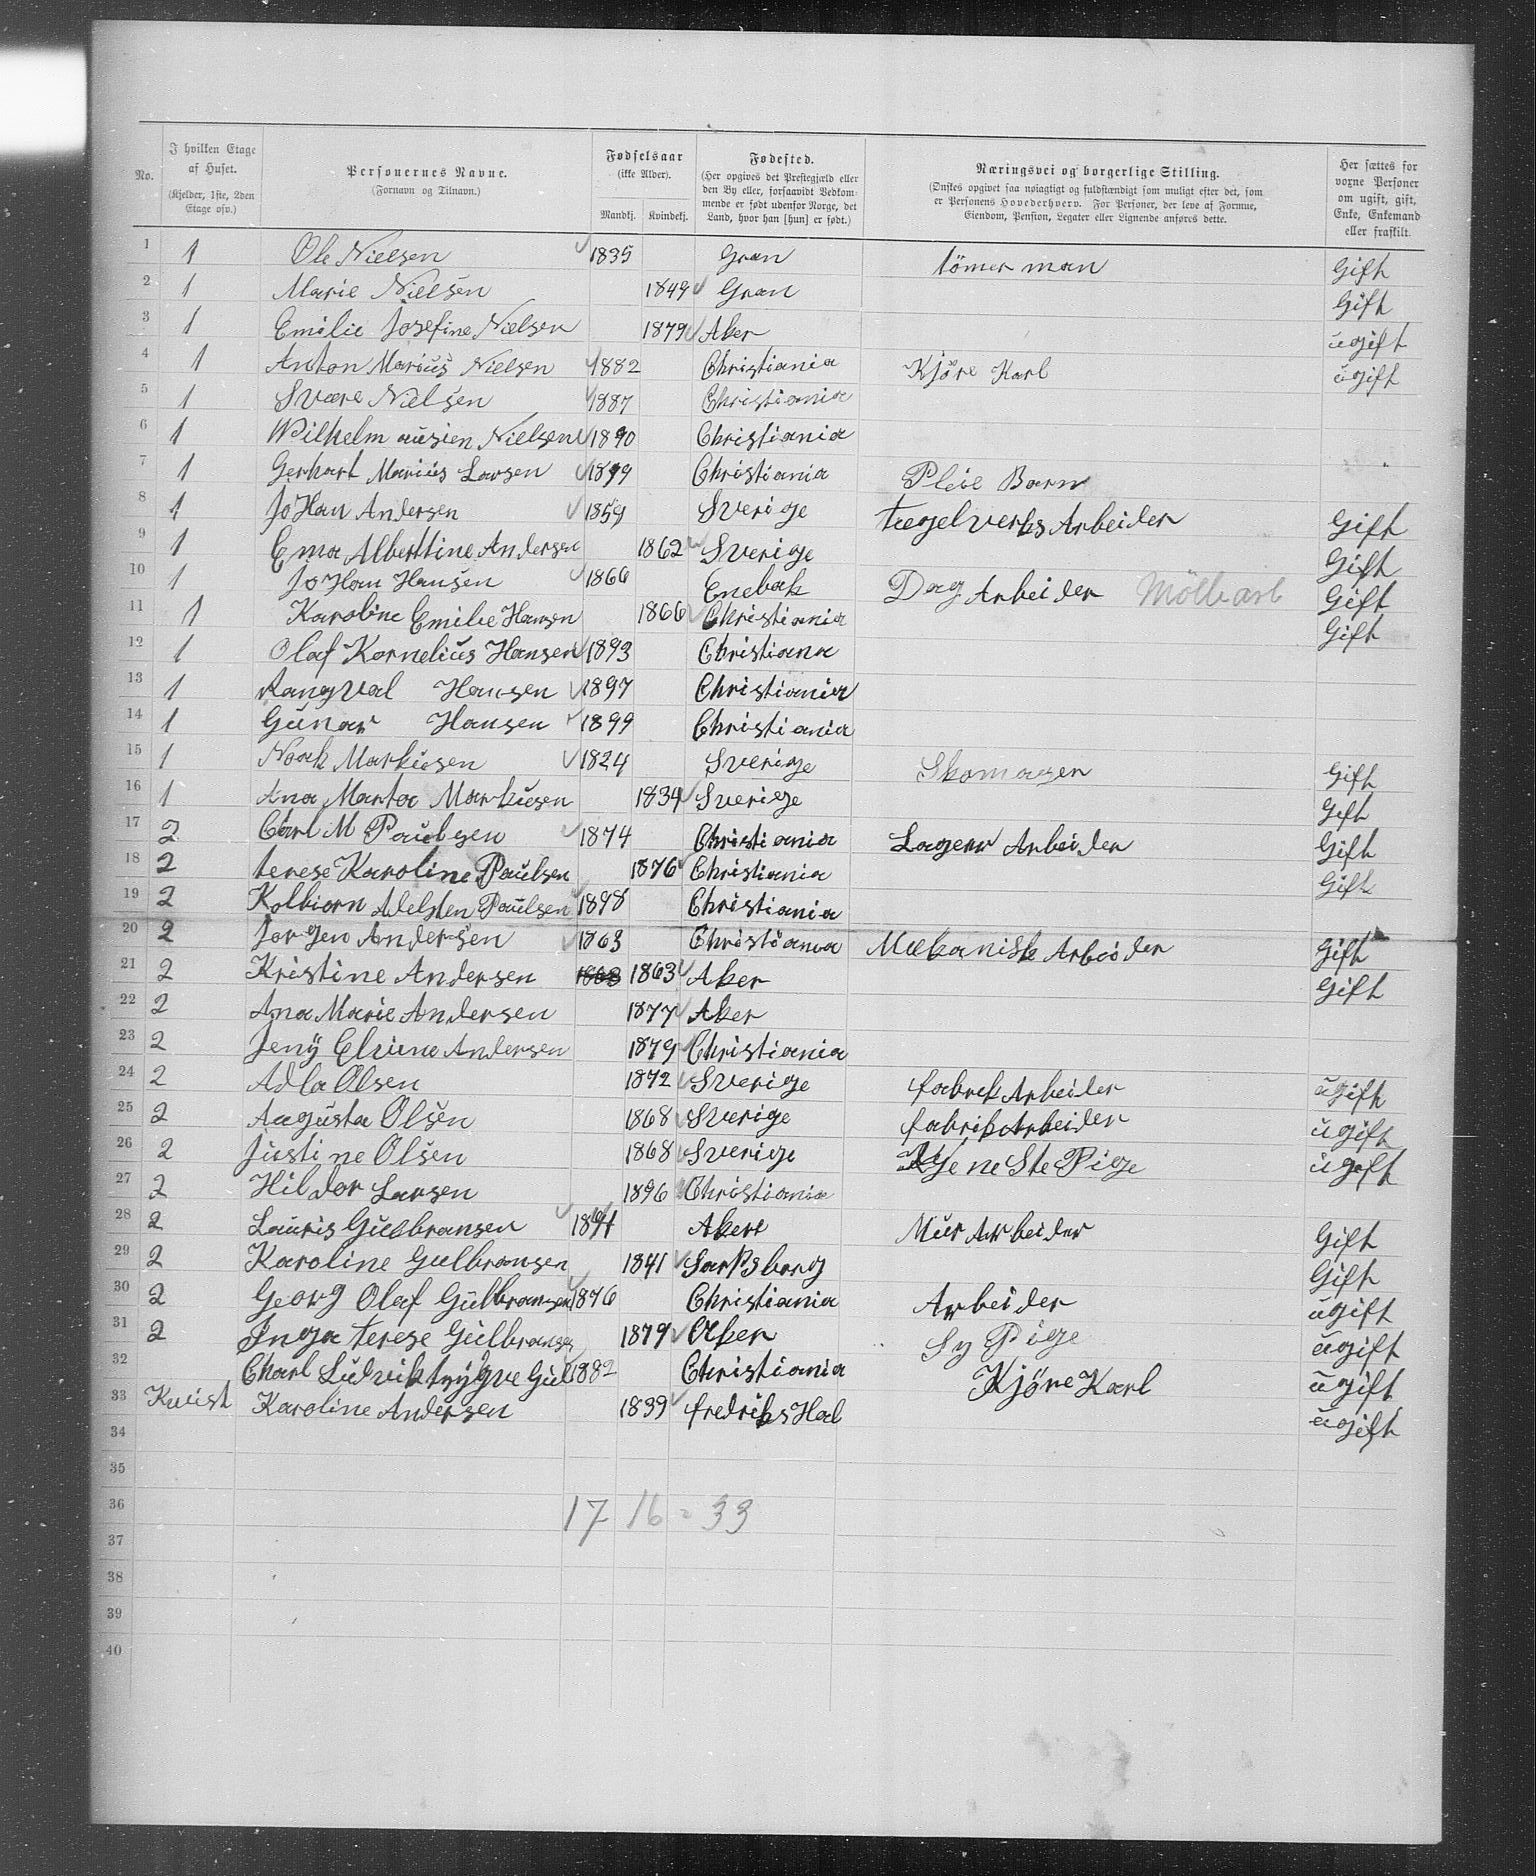 No. | I hvilken Etage af Huset. (Kjelder, 1ste, 2den Etage osv.) | Personernes Navne. (Fornavn og Tilnavn.) | Fødselsaar (ikke Alder). Mandkj. Kvindekj. | Fødested. (Her opgives det Prestegjæld eller den By eller, forsaavidt Vedkommende er født udenfor Norge, det Land, hvor han [hun] er født.) | Næringsvei og borgerlige Stilling. (Ønskes opgivet saa nøiagtigt og fuldstændigt som muligt efter det, som er Personens Hovederhverv. For Personer, der leve af Formue, Eiendom, Pension, Legater eller Lignende anføres dette.) | Her sættes for voxne Personer om ugift, gift, Enke, Enkemand eller fraskilt.
1 1 Ole Nielsen 1835 Gran tömer man Gift
2 1 Marie Nielsen 1849 Gran Gift
3 1 Emilie Josefine Nielsen 1879 Aker ugift
4 1 Anton Marius Nielsen 1882 Christiania Kjöre Karl ugift
5 1 Svære Nielsen 1887 Christiania
6 1 Wilhelm ausien Nielsen 1890 Christiania
7 1 Gerhart Marius Larsen 1899 Christiania Pleie Barn
8 1 JoHan Andersen 1859 Sverige tægelverks Arbeider Gift
9 1 Ema Alberttine Andersen 1862 Sverige Gift
10 1 JoHan Hansen 1866 Enebak Dag Arbeider Möllkarl Gift
11 1 Karoline Emilie Hansen 1866 Christiania Gift
12 1 Olaf Kornelius Hansen 1893 Christiana
13 1 Rangval Hansen 1897 Christiania
14 1 Gunar Hansen 1899 Christiania
15 1 Noak Markusen 1824 Sverige Skomager Gift
16 1 Ana Marta Markusen 1834 Sverige Gift
17 2 Carl M Paulsen 1874 Christiania Lagerv Arbeider Gift
18 2 terese Karoline Paulsen 1876 Christiania Gift
19 2 Kolbiorn Adelsten Paulsen 1898 Christiania
20 2 Jorgen Andersen 1863 Christiania Mækanisk Arbeider Gift
21 2 Kristine Andersen 1863 Aker Gift
22 2 Ana Marie Andersen 1877 Aker
23 2 Jeny Elvine Andersen 1879 Christiania
24 2 Adla Olsen 1872 Sverige fabrek Arbeider ugift
25 2 Augusta Olsen 1868 Sverige fabrik Arbeider ugift
26 2 Justine Olsen 1868 Sverige Tjene Ste Pige ugift
27 2 Hildor Larsen 1896 Christiania
28 2 Lauris Gulbransen 1841 Akere Mur Arbeider Gift
29 2 Karoline Gulbransen 1841 Sarpsborg Gift
30 2 Georg Olaf Gulbransen 1876 Christiania Arbeider ugift
31 2 Inga terese Gulbransen 1879 Aker Sy Pige ugift
32 Charl Ludvik trygve Gul 1882 Christiania Kjöre Karl ugift
33 Kvist Karoline Andersen 1839 fredriksHal ugift
34
35
36
17 16 = 33
37
38
39
40